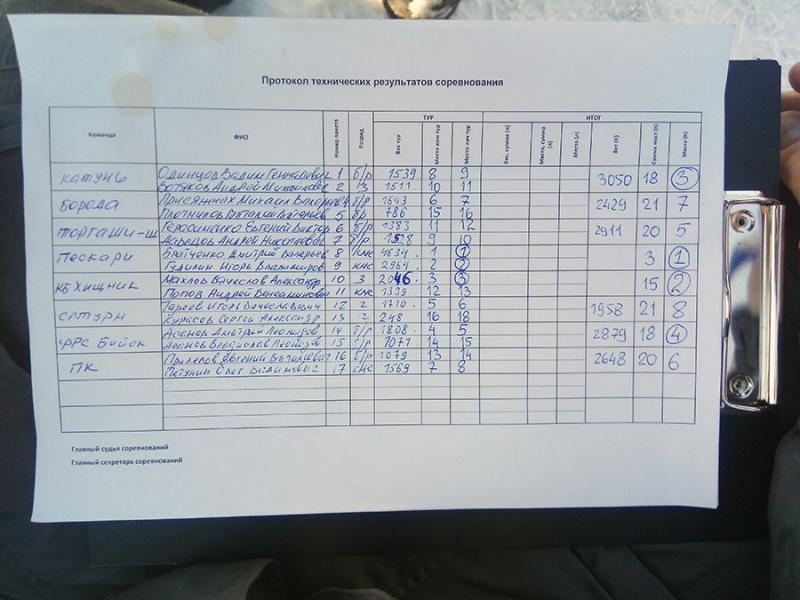 Протокол технических результатов соревнования
Команда ФИО Номер пакета Разряд ТУР ИТОГ
Вес тур Место ком тур Место лич тур Вес, сумма (л) Место, сумма (л) Место (л) Вес (К) Сумма мест (К) Место (К)
Катунь Одинцов Вадим Геннадьевич 1 б/р 1539 8 9 3050 18 3
Андрей Михайлович 2 3 1511 10 11
Борода Михаил 4 б/р 1643 6 7 2429 21 7
Плотников 5 бр 786 15 16
Торгаши-Ш Герасименко Евгений Виктор 6 б/р 1383 11 12 2911 20 5
Давыдов Андрей Николаевич 7 б/р 1528 9 10
Пескари Братченко Дмитрий Валерьев 8 кмс 4634 1 1 3 1
Гудилин Игорь Владимиров 9 кмс 2964 2 2
КБ Хищник Махлов Вячеслав Александр 10 3 2046 3 3 15 2
Попов Андрей Вениаминович 11 кмс 1339 12 13
Сатурн Игорь Вячеславович 12 2 1710 5 6 1958 21 8
Курасов Сергей Александр 13 2 248 16 18
ФРС Бийск Асанов Дмитрий Леонидов 14 б/р 1808 4 5 2879 18 4
Асанов Владислав Леонидов 15 б/р 1071 14 15
ПК Евгений Витальевич 16 б/р 1079 13 14 2648 20 6
Олег Вадимович 17 кмс 1569 7 8
Главный судья соревнований
Главный секретарь соревнований